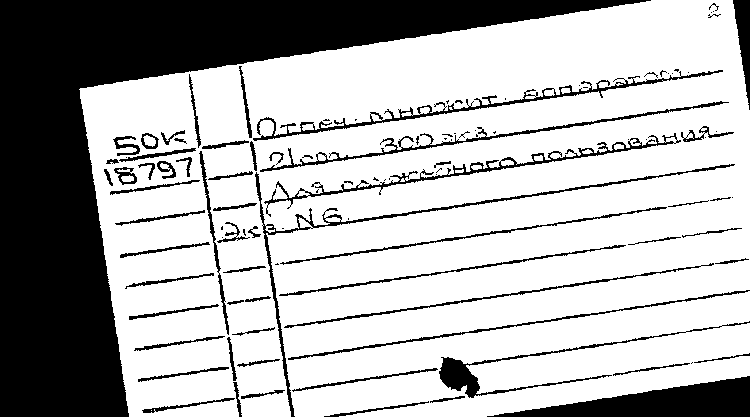 2
Отпеч. множит. аппаратом
50К
21см. 300 экз.
18797
Для служебного пользования
Экз. N 6